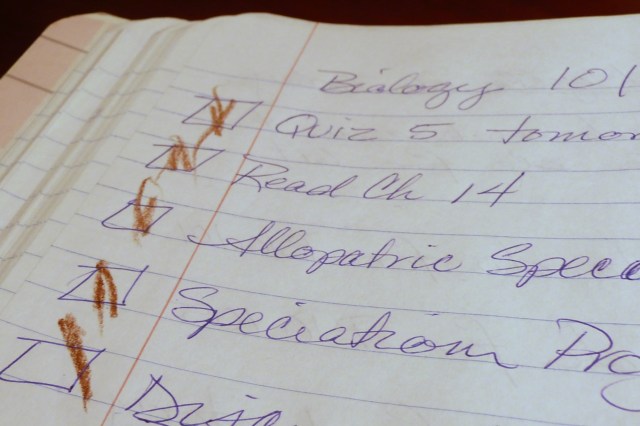 Biology 101
Quiz 5 tomor
Read Ch 14
Allopatric Spec
Speciation Pro
Disc